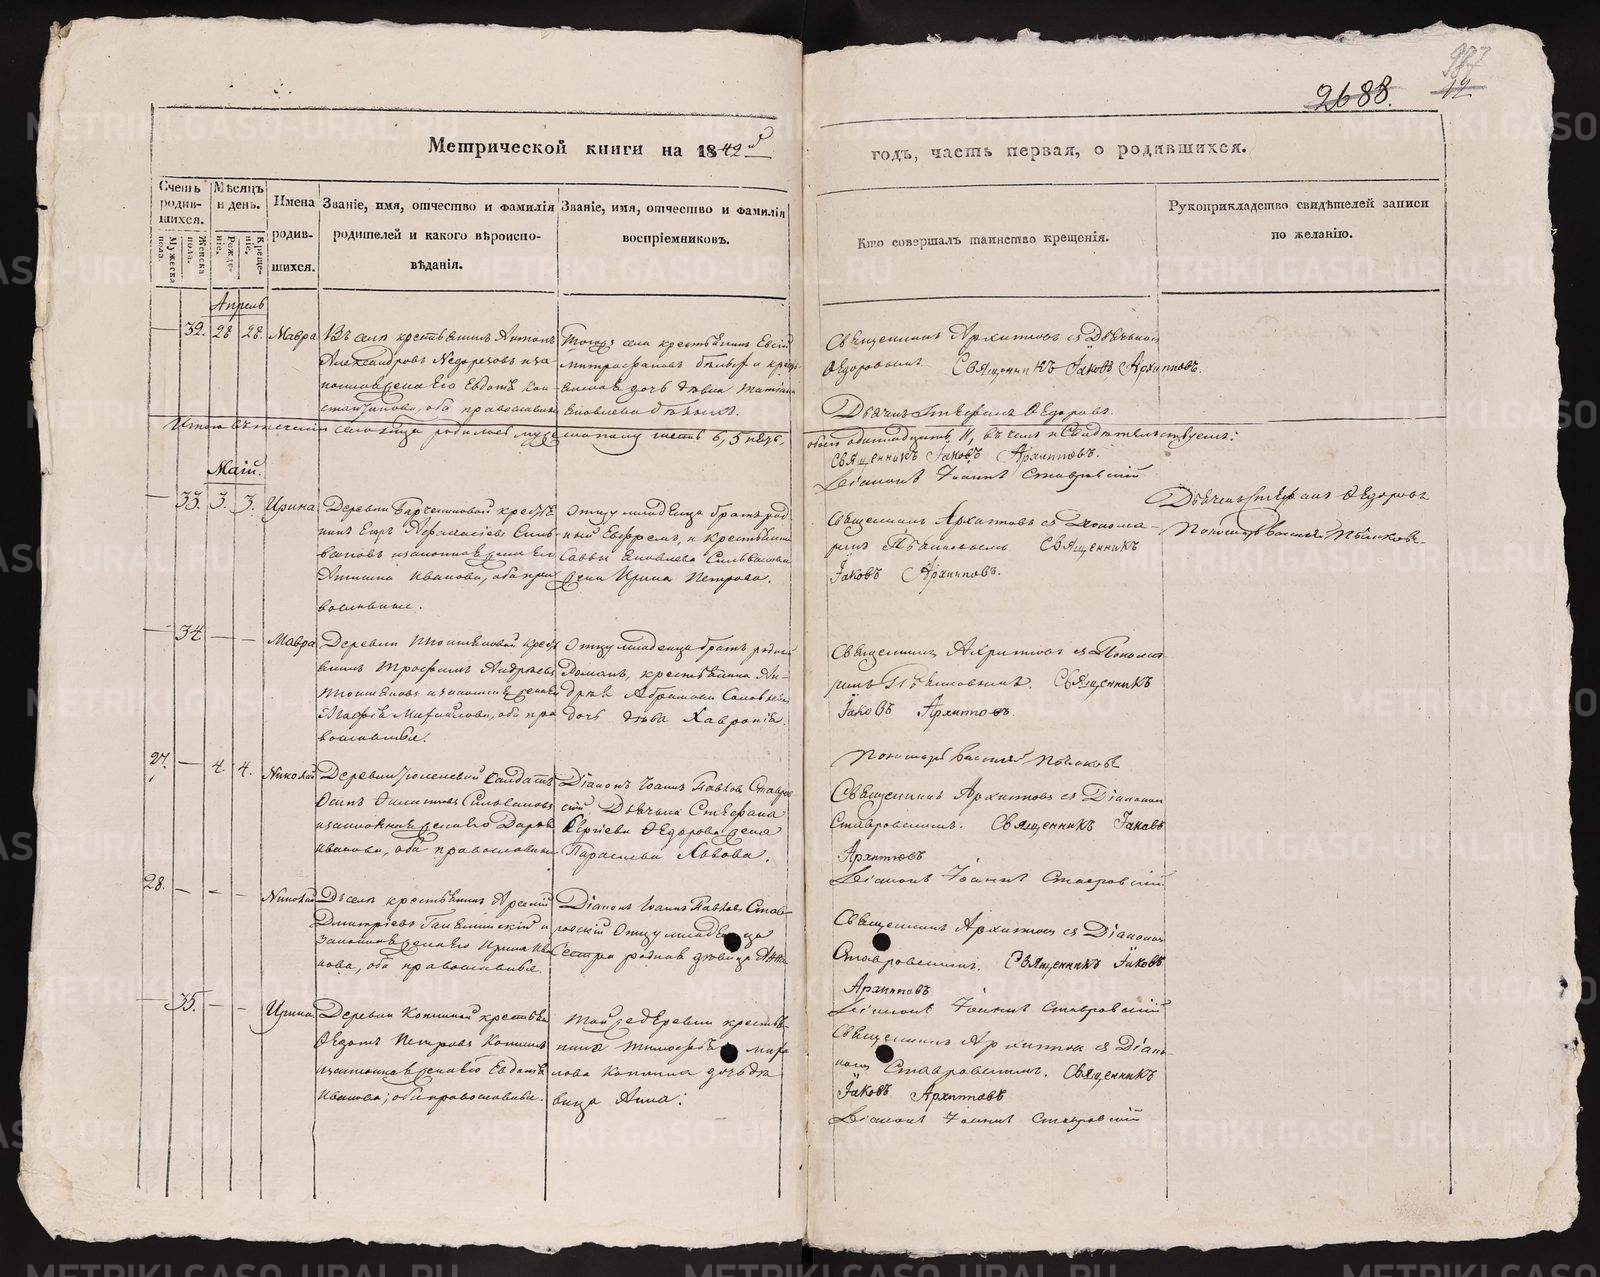 987
12
2688.
Метрической книги на 1842й
годъ, часть первая, о родившихся.
Счетъ родив-шихся.
Мужеска пола.
Женска пола.
Мѣсяцъ и день.
Рожде-ніе.
Креще-ніе.
Имена родив-шихся.
Званіе, имя, отчество и фамилія
родителей и какого вѣроиспо-
вѣданія.
Званіе, имя, отчество и фамилія
воспріемниковъ.
Кто совершалъ таинство крещенія.
Рукоприкладство свидѣтелей записи
по желанію.
Апрель
32. 28 28. Мавра
Въ селѣ крестьянинъ Антонъ
Александровъ Недорезовъ и за-
конная жена его Евдокія Кон-
стантинова, оба православные
Тогоже села крестьянинъ Евсій
Митрофановъ
дочь девка Татіана
Яковлева
Священникъ Архиповъ съ Дьячкомъ
Ѳедоровымъ. Священникъ Іаковъ Архиповъ.
Дьячекъ Стефанъ Ѳедоровъ.
Итого въ теченіи месяца родилось мужескаго шесть 6, 5
обоего одинадцать 11, въ чемъ и свидѣтельствуемъ:
Священникъ Іаковъ Архиповъ.
Діаконъ Іоаннъ Ставровскій
Дьячекъ Стефанъ Ѳедоровъ
Пономарь Василій
Маій.
33. 3. 3. Ирина
Деревни крестья-
нинъ Егоръ Афанасіевъ Силь-
вановъ и законная жена его
Анисія Иванова, оба пра-
вославные.
Отцу младенца братъ род-
ный Ефремъ, и крестьянина
Саввы Яковлева Сильванова
жена Ирина Петрова.
Священникъ Архиповъ съ Понома-
ремъ Священникъ
Іаковъ Архиповъ.
34 — — Мавра
Деревни кресть-
янинъ Трофимъ Андреевъ
и законная жена его
Михайлова, оба пра-
вославные.
Отцу младенца братъ родный
Романъ, крестьянина Ан-
дрея Абрамова
дочь дѣва Хавронія.
Священникъ Архиповъ съ Понома-
ремъ Священникъ
Іаковъ Архиповъ.
Пономарь Василій
27. — 4. 4. Николай
Деревни Солдатъ
Осипъ Филиповъ Сильвановъ
и законная жена его Дарья
Иванова, оба православные
Діаконъ Іоаннъ Павловъ Ставров-
скій Дьячка Стефана
Сергіева Ѳедорова жена
Параскева Львова.
Священникъ Архиповъ съ Діакономъ
Ставровскимъ. Священникъ Іаковъ
Архиповъ
Діаконъ Іоаннъ Ставровскій
28. — — — Николай
Въ селѣ крестьянинъ Арсеній
Дмитріевъ и
законная жена его Ирина Ива-
нова, оба православные.
Діаконъ Іоаннъ Павловъ Став-
ровскій Отцу младенца
Сестра родная дѣвица Анна
Священникъ Архиповъ съ Діакономъ
Ставровскимъ. Священникъ Іаковъ
Архиповъ
Діаконъ Іоаннъ Ставровскій
— 35. — — Ирина
Деревни Копниной крестьян.
Ѳедотъ Петровъ Копнинъ
и законная жена его Евдокія
Иванова; оба православные.
Той же деревни крестья-
нина Тимофея
Копнина дочь дѣ-
вица Анна:
Священникъ Архиповъ съ Діако-
номъ Ставровскимъ. Священникъ
Іаковъ Архиповъ
Діаконъ Іоаннъ Ставровскій
METRIKI.GASO-URAL.RU